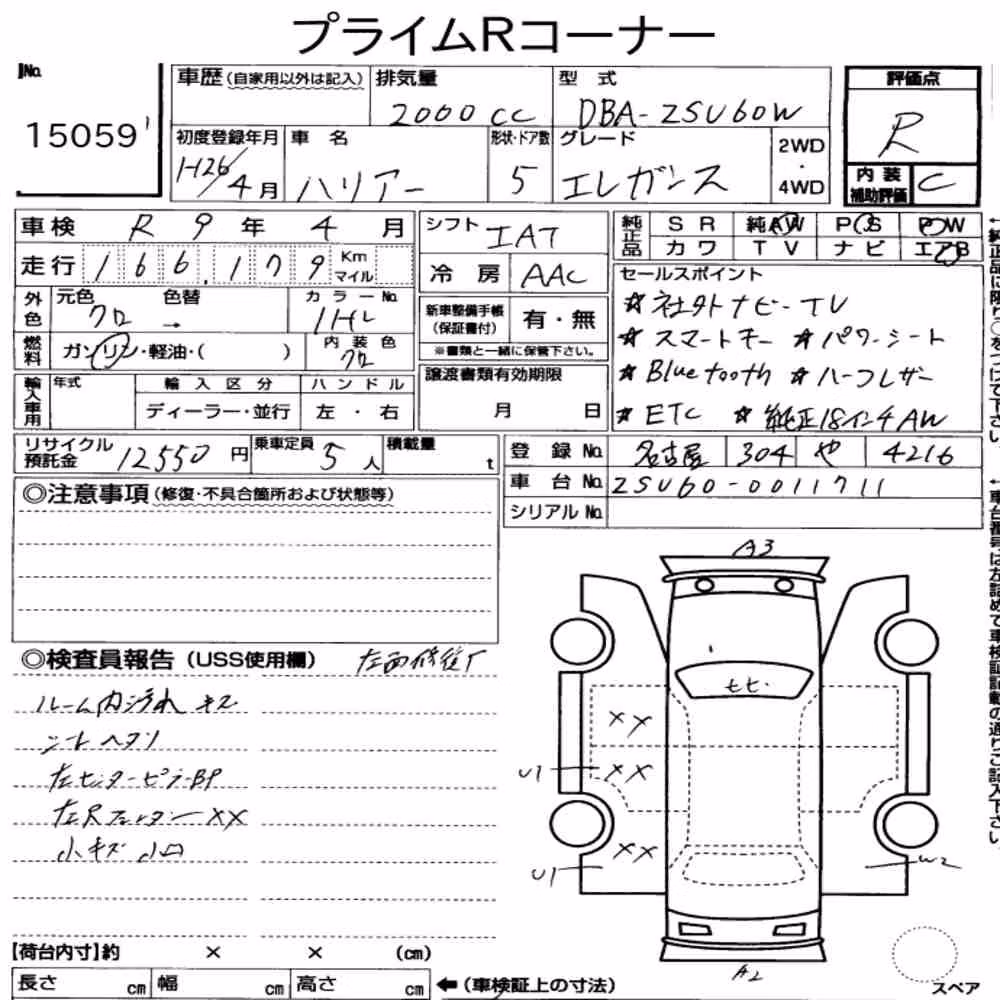 プライムRコーナー
No.
15059
車歴(自家用以外は記入)
排気量
2000 cc
型 式
DBA-ZSU60W
評価点
R
初度登録年月
H26/4月
車 名
ハリアー
形状・ドア数
5
グレード
エレガンス
2WD
・
4WD
内 装
補助評価
C
車検 R 9 年 4 月
シフト IAT
純正品
S R 純AW P S P W
カ ワ T V ナ ビ エアB
走行 166,179 Km
マイル
冷 房 AAC
セールスポイント
☆社外ナビ-TV
☆スマートキー ☆パワーシート
☆Bluetooth ☆ハーフレザー
☆ETC ☆純正18インチAW
外色
元色 色替
クロ →
カラーNo.
新車整備手帳
(保証書付)
有・無
※書類と一緒に保管下さい。
燃料
ガソリン・軽油・( )
内 装 色
クロ
譲渡書類有効期限
月 日
輸入車用
年式
輸 入 区 分
ハ ン ド ル
ディーラー・並行
左 ・ 右
リサイクル
預託金 12550 円
乗車定員 5 人
積載量 t
登 録 No. 名古屋 304 や 4216
車 台 No. ZSU60-0011711
シリアル No.
◎注意事項(修復・不具合箇所および状態等)
◎検査員報告(USS使用欄)
ルーム内汚れ キズ
シートヘタリ
左センターピラーBP
左Rフェンダー XX
小キズ 小凹
A3
ヒビ
XX
U1 XX
XX
U1
W2
A2
スペア
【荷台内寸】約 × × (cm)
長さ cm 幅 cm 高さ cm ←(車検証上の寸法)
←純正品に限り○をつけて下さい。
←車台番号は左詰めで車検証記載の通りご記入下さい。